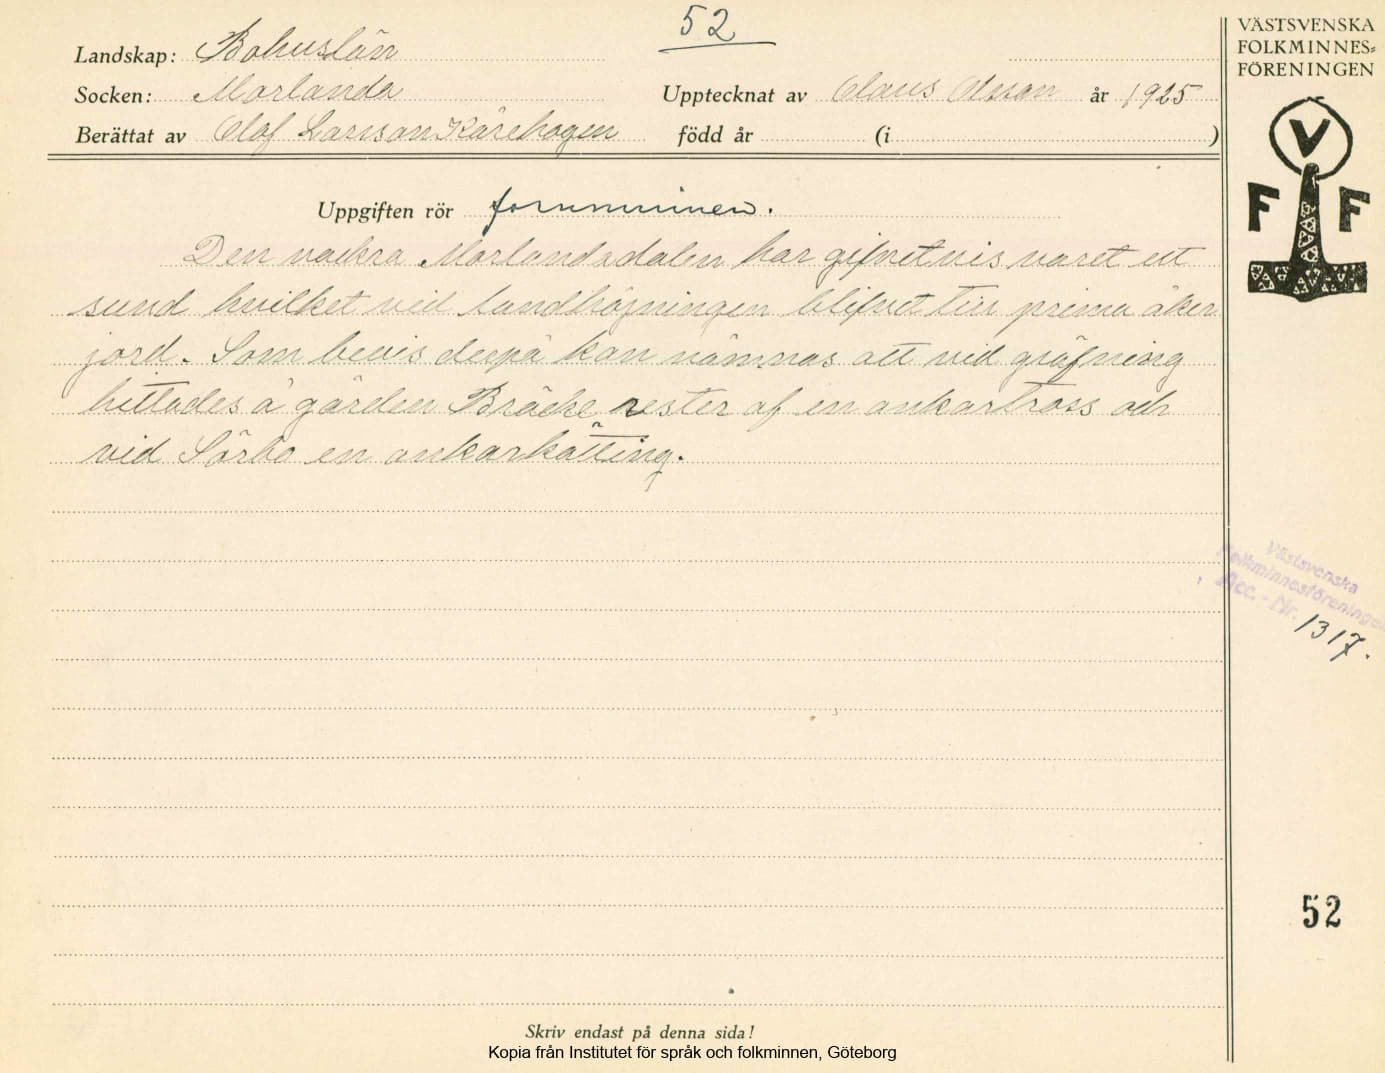 52
Landskap: Bohuslän
Socken: Morlanda
Upptecknat av Claus Olsson år 1925
Berättat av Olof Larsson Kårehogen född år (i )
VÄSTSVENSKA
FOLKMINNES=
FÖRENINGEN
V
F F
Uppgiften rör fornminnen.
Den vackra Morlandadalen har gifvetvis varet ett
sund hvilket vid landhöjningen blifvet till prima åker
jord. Som bevis derpå kan nämnas att vid gräfning
hittades å gården Bräcke rester af en ankartross och
vid Sörbo en ankarkätting.
Västsvenska
Folkminnesföreningen
Acc. - Nr. 1317.
52
Skriv endast på denna sida!
Kopia från Institutet för språk och folkminnen, Göteborg